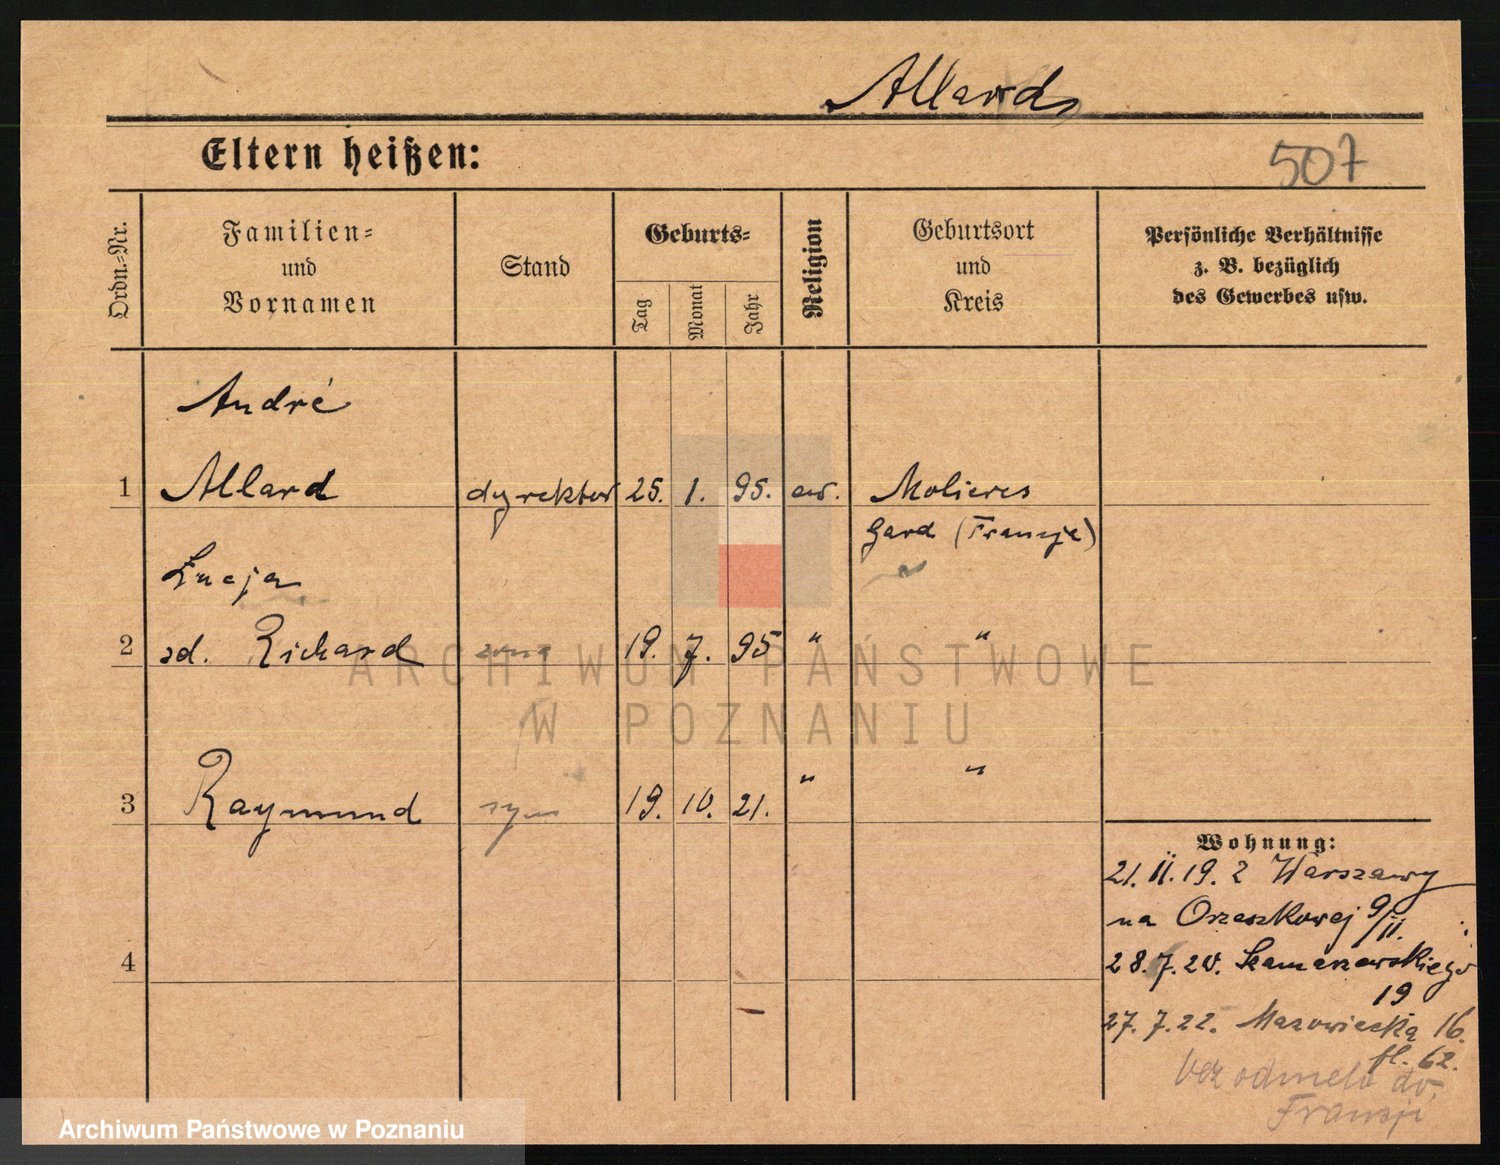 Allard
Eltern heißen:
507
Ordn.-Nr.
Familien-
und
Vornamen
Stand
Geburts-
Tag
Monat
Jahr
Religion
Geburtsort
und
Kreis
Persönliche Verhältnisse
z. B. bezüglich
des Gewerbes usw.
André
1 Allard dyrektor 25. 1. 95. ew. Molieres
Gard (Francja)
Łucja
2 zd. Richard żona 19. 7. 95 " "
3 Raymund syn 19. 10. 21. " "
4
Wohnung:
21. 11. 19. z Warszawy
na Orzeszkowej 9/II.
28. 7. 20. Szamarzewskiego
19
27. 7. 22. Mazowiecką 16.
fl. 62.
bez odmeld. do
Francji
ARCHIWUM PAŃSTWOWE
W POZNANIU
Archiwum Państwowe w Poznaniu